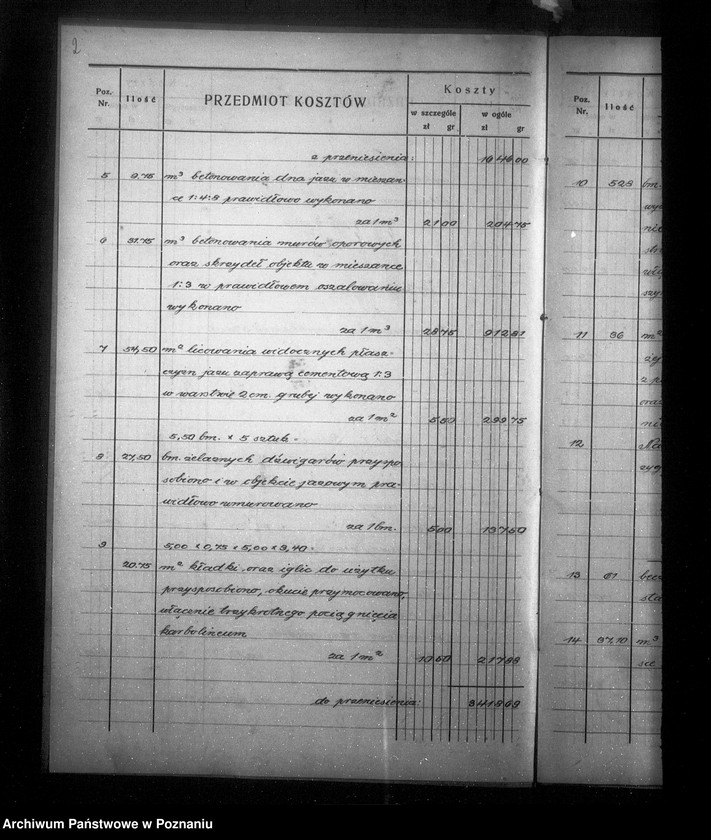 2
Poz. Nr. Ilość PRZEDMIOT KOSZTÓW Koszty
w szczególe w ogóle
zł gr zł gr
z przeniesienia: 1646 00
5 9.75 m³ betonowania dna jazu w mieszan-
ce 1:4:8 prawidłowo wykonano
za 1 m³ 21 00 204 75
6 31.75 m³ betonowania murów oporowych
oraz skrzydeł objektu w mieszance
1:3 w prawidłowem oszalowaniu
wykonano
za 1 m³ 28 75 912 81
7 54,50 m² licowania widocznych płasz-
czyzn jazu zaprawą cementową 1:3
w warstwie 2 cm. grubej wykonano
za 1 m² 5 50 299 75
5,50 bm. x 5 sztuk.
8 27,50 bm. żelaznych dźwigarów przyspo
sobiono i w objekcie jazowym pra-
widłowo wmurowano
za 1 bm. 5 00 137 50
9 5,00 x 0,75 x 5,00 x 3,40.
20.75 m² kładki, oraz iglic do użytku
przysposobiono, okucie przymocowano,
włącznie trzykrotnego pociągnięcia
karbolineum
za 1 m² 10 50 217 88
do przeniesienia: 3418 69
Poz. Nr. Ilość
10 528 bm.
11 96 m²
z p
oraz
12
13 61
14 37.10 m³